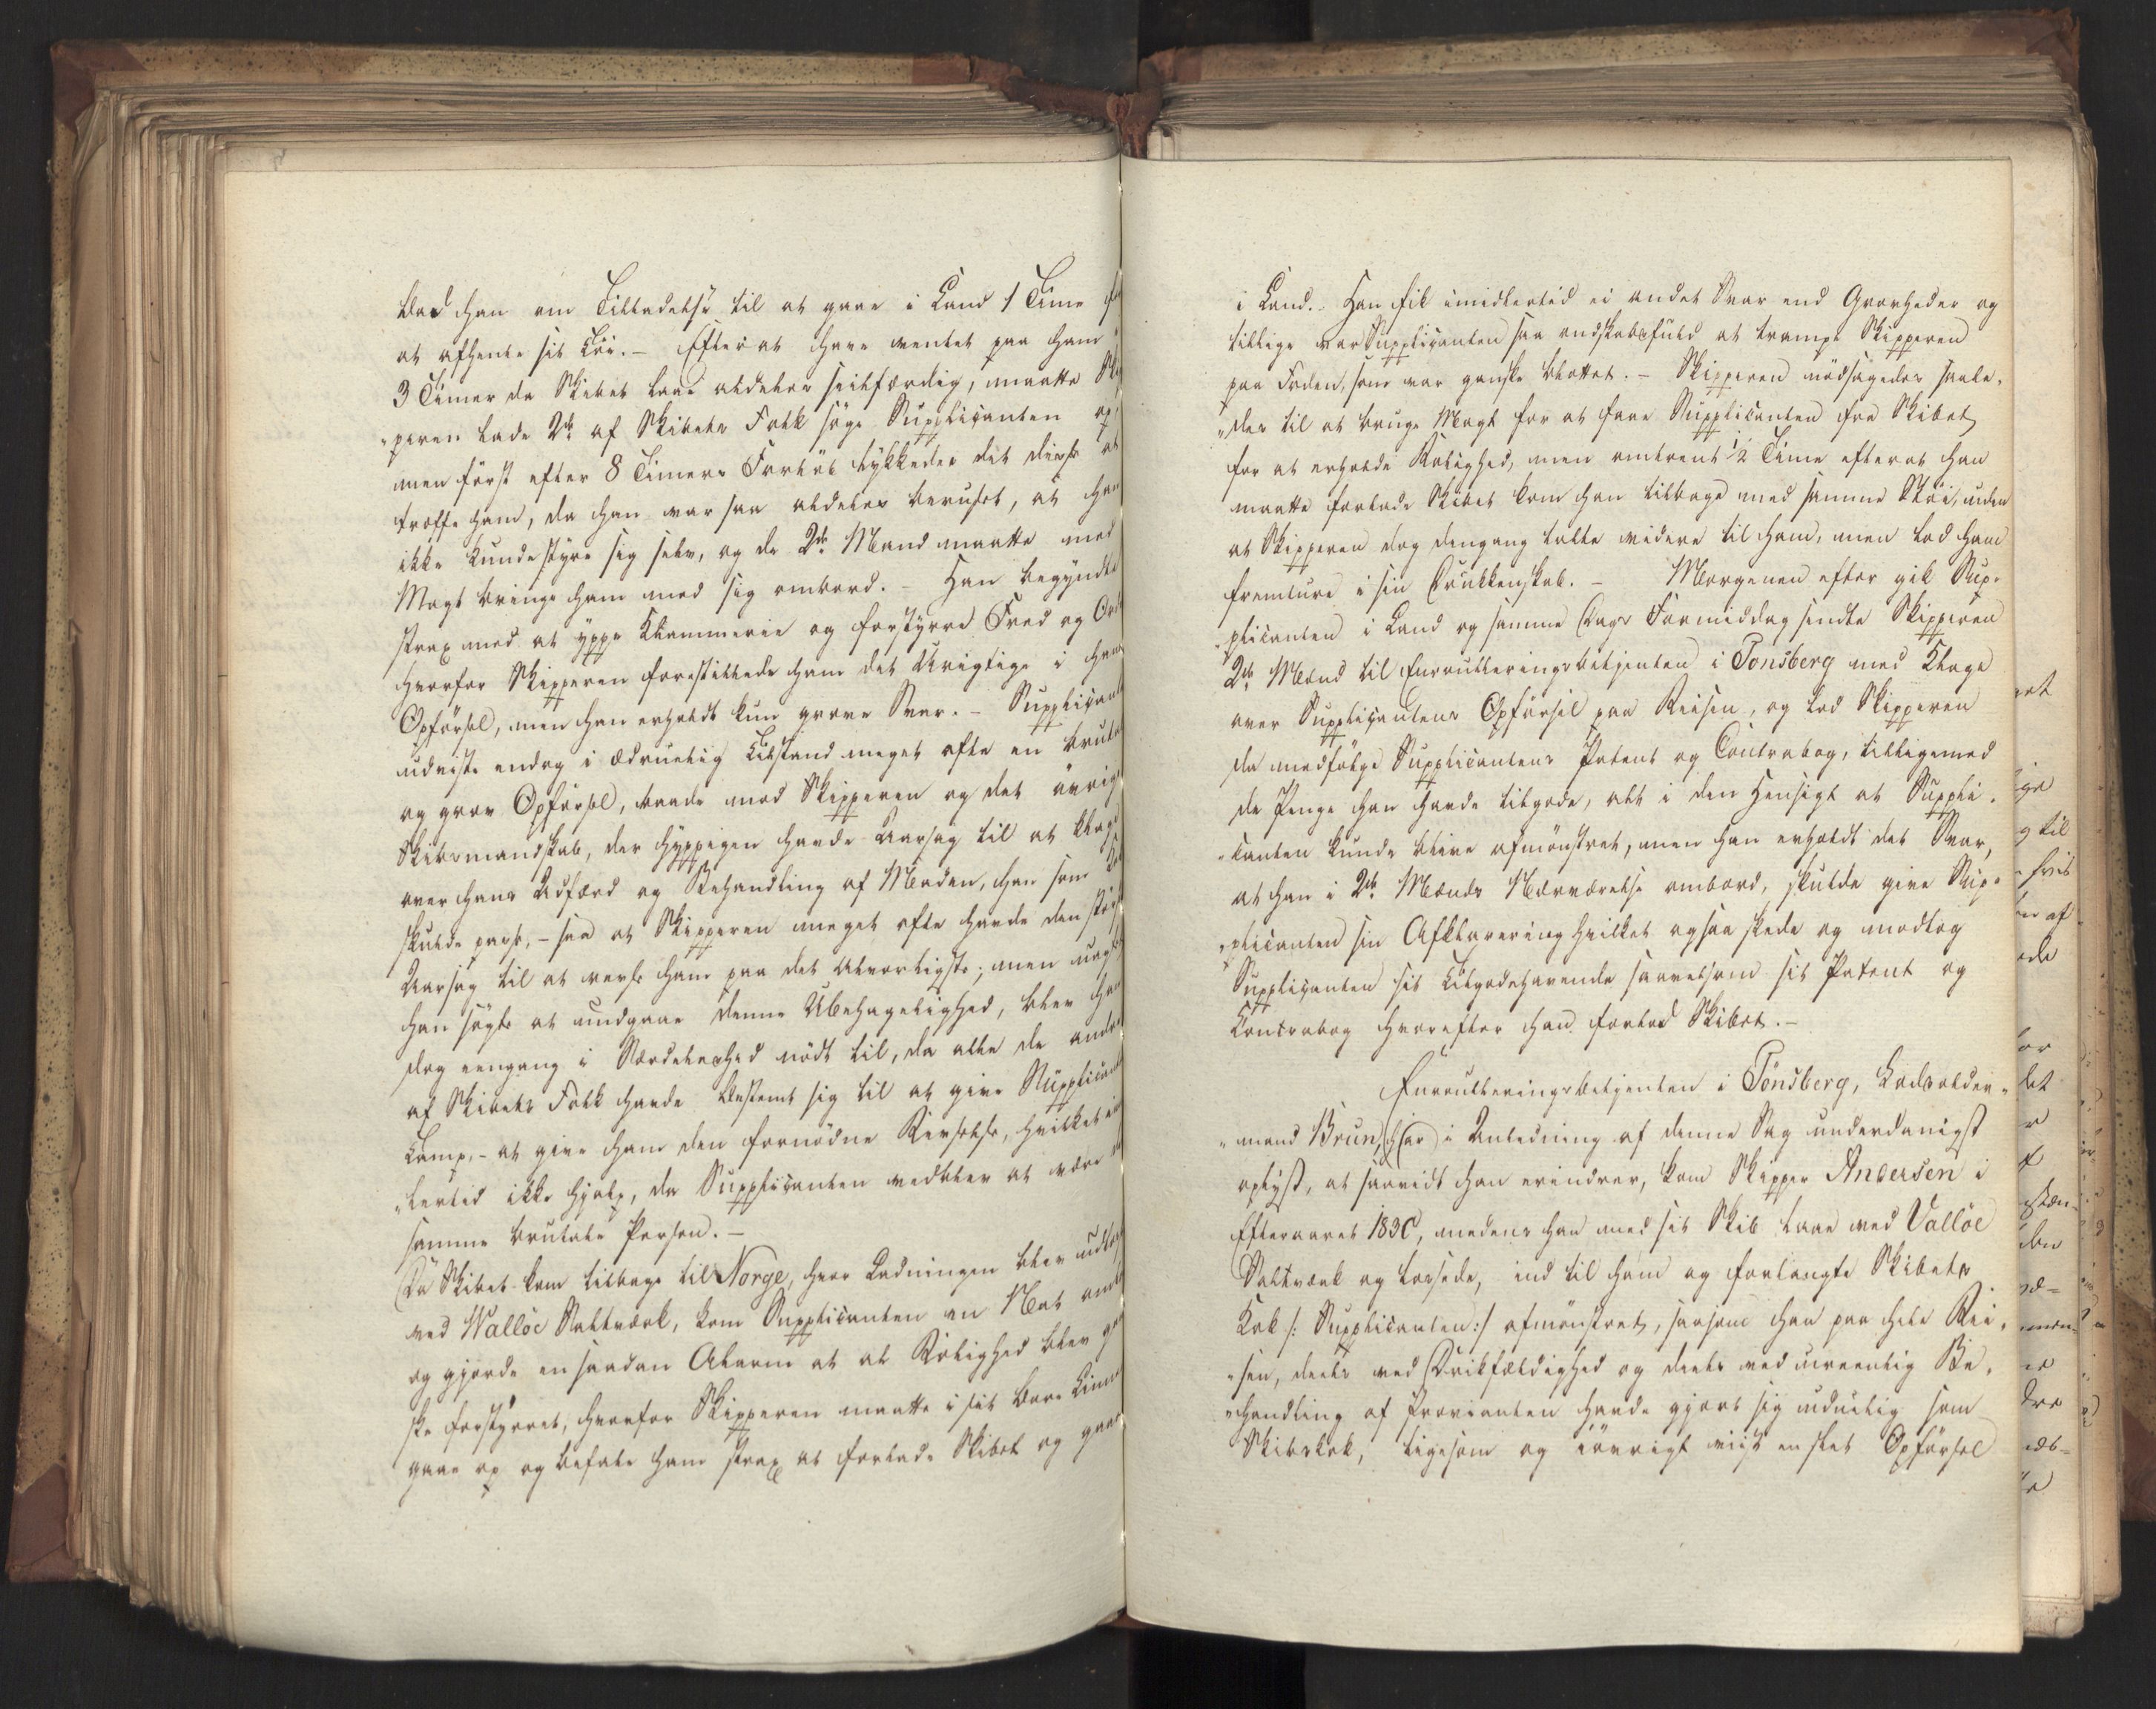 bad han om Tilladelse til at gaae i Land 1 Time for
at afhente sit Töi. – Efterat have ventet paa ham i
3 Timer da Skibet laae aldeles seilfærdig, maatte Skip
„peren lade 2de af Skibets Folk söge Supplicanten op,
men först efter 8 Timers Forlöb lykkedes det disse at
træffe ham, da han var saa aldeles beruset, at han
ikke kunde styre sig selv, og de 2de Mænd maatte med
Magt bringe ham med sig ombord. – Han begyndte
strax med at yppe Klammerie og forstyrre Fred og
hvorfor Skipperen forestillede ham det Urigtige i hans
Opförsel, men han erholdt kun grove Svar. – Supplicanten
udviste endog i ædruelig Tilstand meget ofte en brutal
og grov Opförsel, baade mod Skipperen og det övrige
Skibsmandskab, der hyppigen havde Aarsag til at klage
over hans Adfærd og Behandling af Maden, han som Kok
skulde passe, – saa at Skipperen meget ofte havde den störste
Aarsag til at revse ham paa det Alvorligste; men
han sögte at undgaae denne Ubehagelighed, blev han
dog eengang i Særdeleshed nödt til, da alle de andre
af Skibets Folk havde bestemt sig til at give Supplicanten
Lamp, – at give ham den fornödne Revselse, hvilket
„lertid ikke hjalp, da Supplicanten vedblev at være
samme brutale Person. –
Da Skibet kom tilbage til Norge, hvor Ladningen blev udlosset
ved Walløe Saltværk, kom Supplicanten en Nat ombord
og gjorde en saadan Alarm at al Rolighed blev
ske forstyrret, hvorfor Skipperen maatte i sit bare Linned
gaae op og befale ham strax at forlade Skibet og gaae
i Land. – Han fik imidlertid ei andet Svar end Grovheder og
tillige var Supplicanten saa ondskabsfuld at trampe Skipperen
paa Foden, som var ganske blottet. – Skipperen nödsagedes saale„
„des til at bruge Magt for at faae Supplicanten fra Skibet
for at erholde Rolighed, men omtrent ½ Time efterat han
maatte forlade Skibet kom han tilbage med samme Stöi, uden
at Skipperen dog dengang talte videre til ham, men lod ham
fremture i sin Drukkenskab. – Morgenen efter gik Sup„
„plicanten i Land og samme Dags Formiddag sendte Skipperen
2de Mand til Enroulleringsbetjenten i Tönsberg med Klage
over Supplicantens Opförsel paa Reisen, og lod Skipperen
da medfölge Supplicantens Patent og Contrabog, tilligemed
de Penge han havde tilgode, alt i den Hensigt at Suppli„
„canten kunde blive afmönstret, men han erholdt det Svar,
at han i 2de Mænds Nærværelse ombord, skulde give Sup„
„plicanten sin Afklarering hvilket ogsaa skede og modtog
Supplicanten sit Tilgodehavende saavelsom sit Patent og
Contrabog hvorefter han forlod Skibet. –
Enroulleringsbetjenten i Tönsberg, Lodsolder„
„mand Brun, har i Anledning af denne Sag underdanigst
oplyst, at saavidt han erindrer, kom Skipper Andersen i
Efteraaret 1830, medens han med sit Skib laae ved Vallöe
Saltværk og lossede, ind til ham og forlangte Skibets
Kok /: Supplicanten :/ afmönstret, saasom han paa hele Rei„
„sen, deels ved Drikfældighed og deels ved urenlig Be„
„handling af Provianten havde gjort sig uduelig som
Skibskok, ligesom og iövrigt viist en slet Opförsel